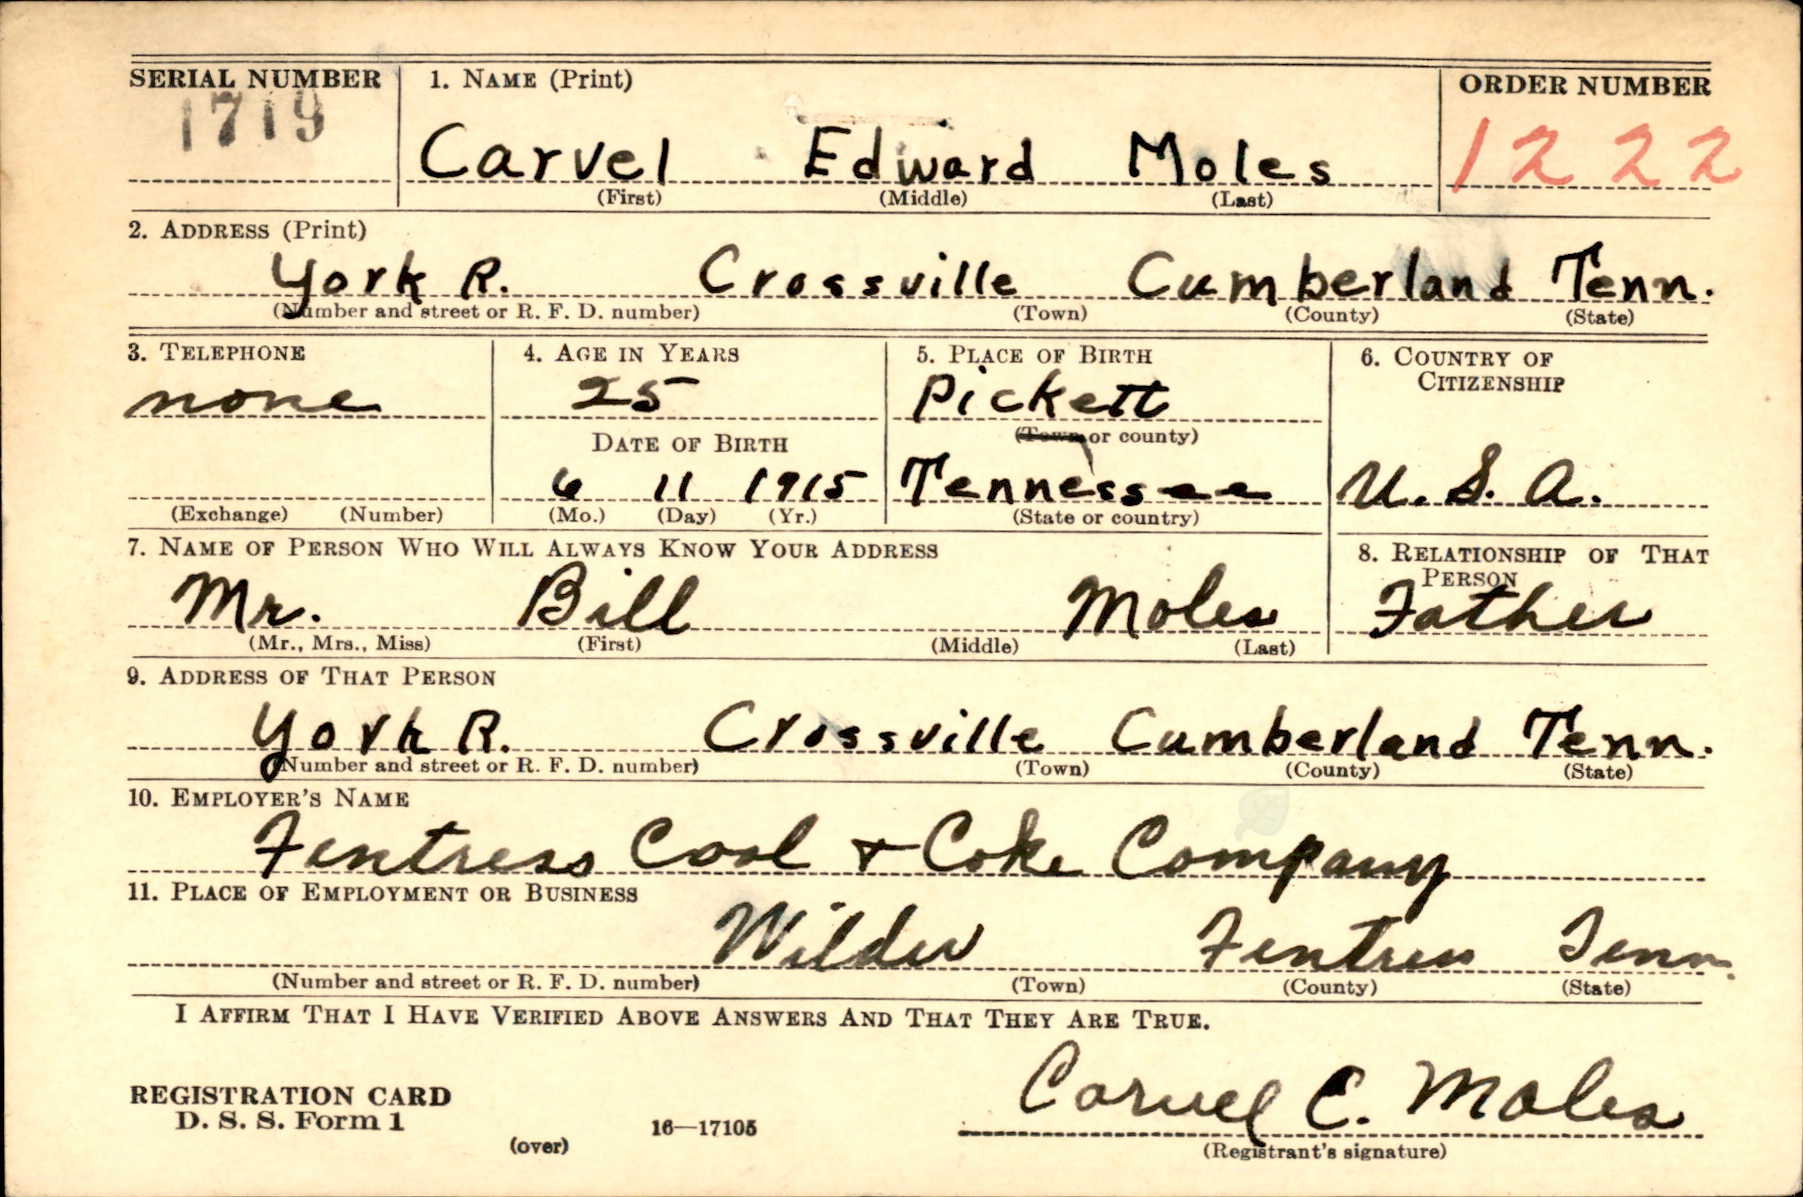 SERIAL NUMBER 1. NAME (Print) ORDER NUMBER
1719 Carvel Edward Moles 1222
(First) (Middle) (Last)
2. ADDRESS (Print)
York R. Crossville Cumberland Tenn.
(Number and street or R. F. D. number) (Town) (County) (State)
3. TELEPHONE 4. AGE IN YEARS 5. PLACE OF BIRTH 6. COUNTRY OF
CITIZENSHIP
none 25 Pickett
(Town or county)
DATE OF BIRTH
6 11 1915 Tennessee U.S.A.
(Exchange) (Number) (Mo.) (Day) (Yr.) (State or country)
7. NAME OF PERSON WHO WILL ALWAYS KNOW YOUR ADDRESS 8. RELATIONSHIP OF THAT
PERSON
Mr. Bill Moles Father
(Mr., Mrs., Miss) (First) (Middle) (Last)
9. ADDRESS OF THAT PERSON
York R. Crossville Cumberland Tenn.
(Number and street or R. F. D. number) (Town) (County) (State)
10. EMPLOYER'S NAME
Fentress Coal + Coke Company
11. PLACE OF EMPLOYMENT OR BUSINESS
Wilder Fentress Tenn.
(Number and street or R. F. D. number) (Town) (County) (State)
I AFFIRM THAT I HAVE VERIFIED ABOVE ANSWERS AND THAT THEY ARE TRUE.
Carvel E. Moles
REGISTRATION CARD
D. S. S. Form 1 16—17105
(over) (Registrant's signature)